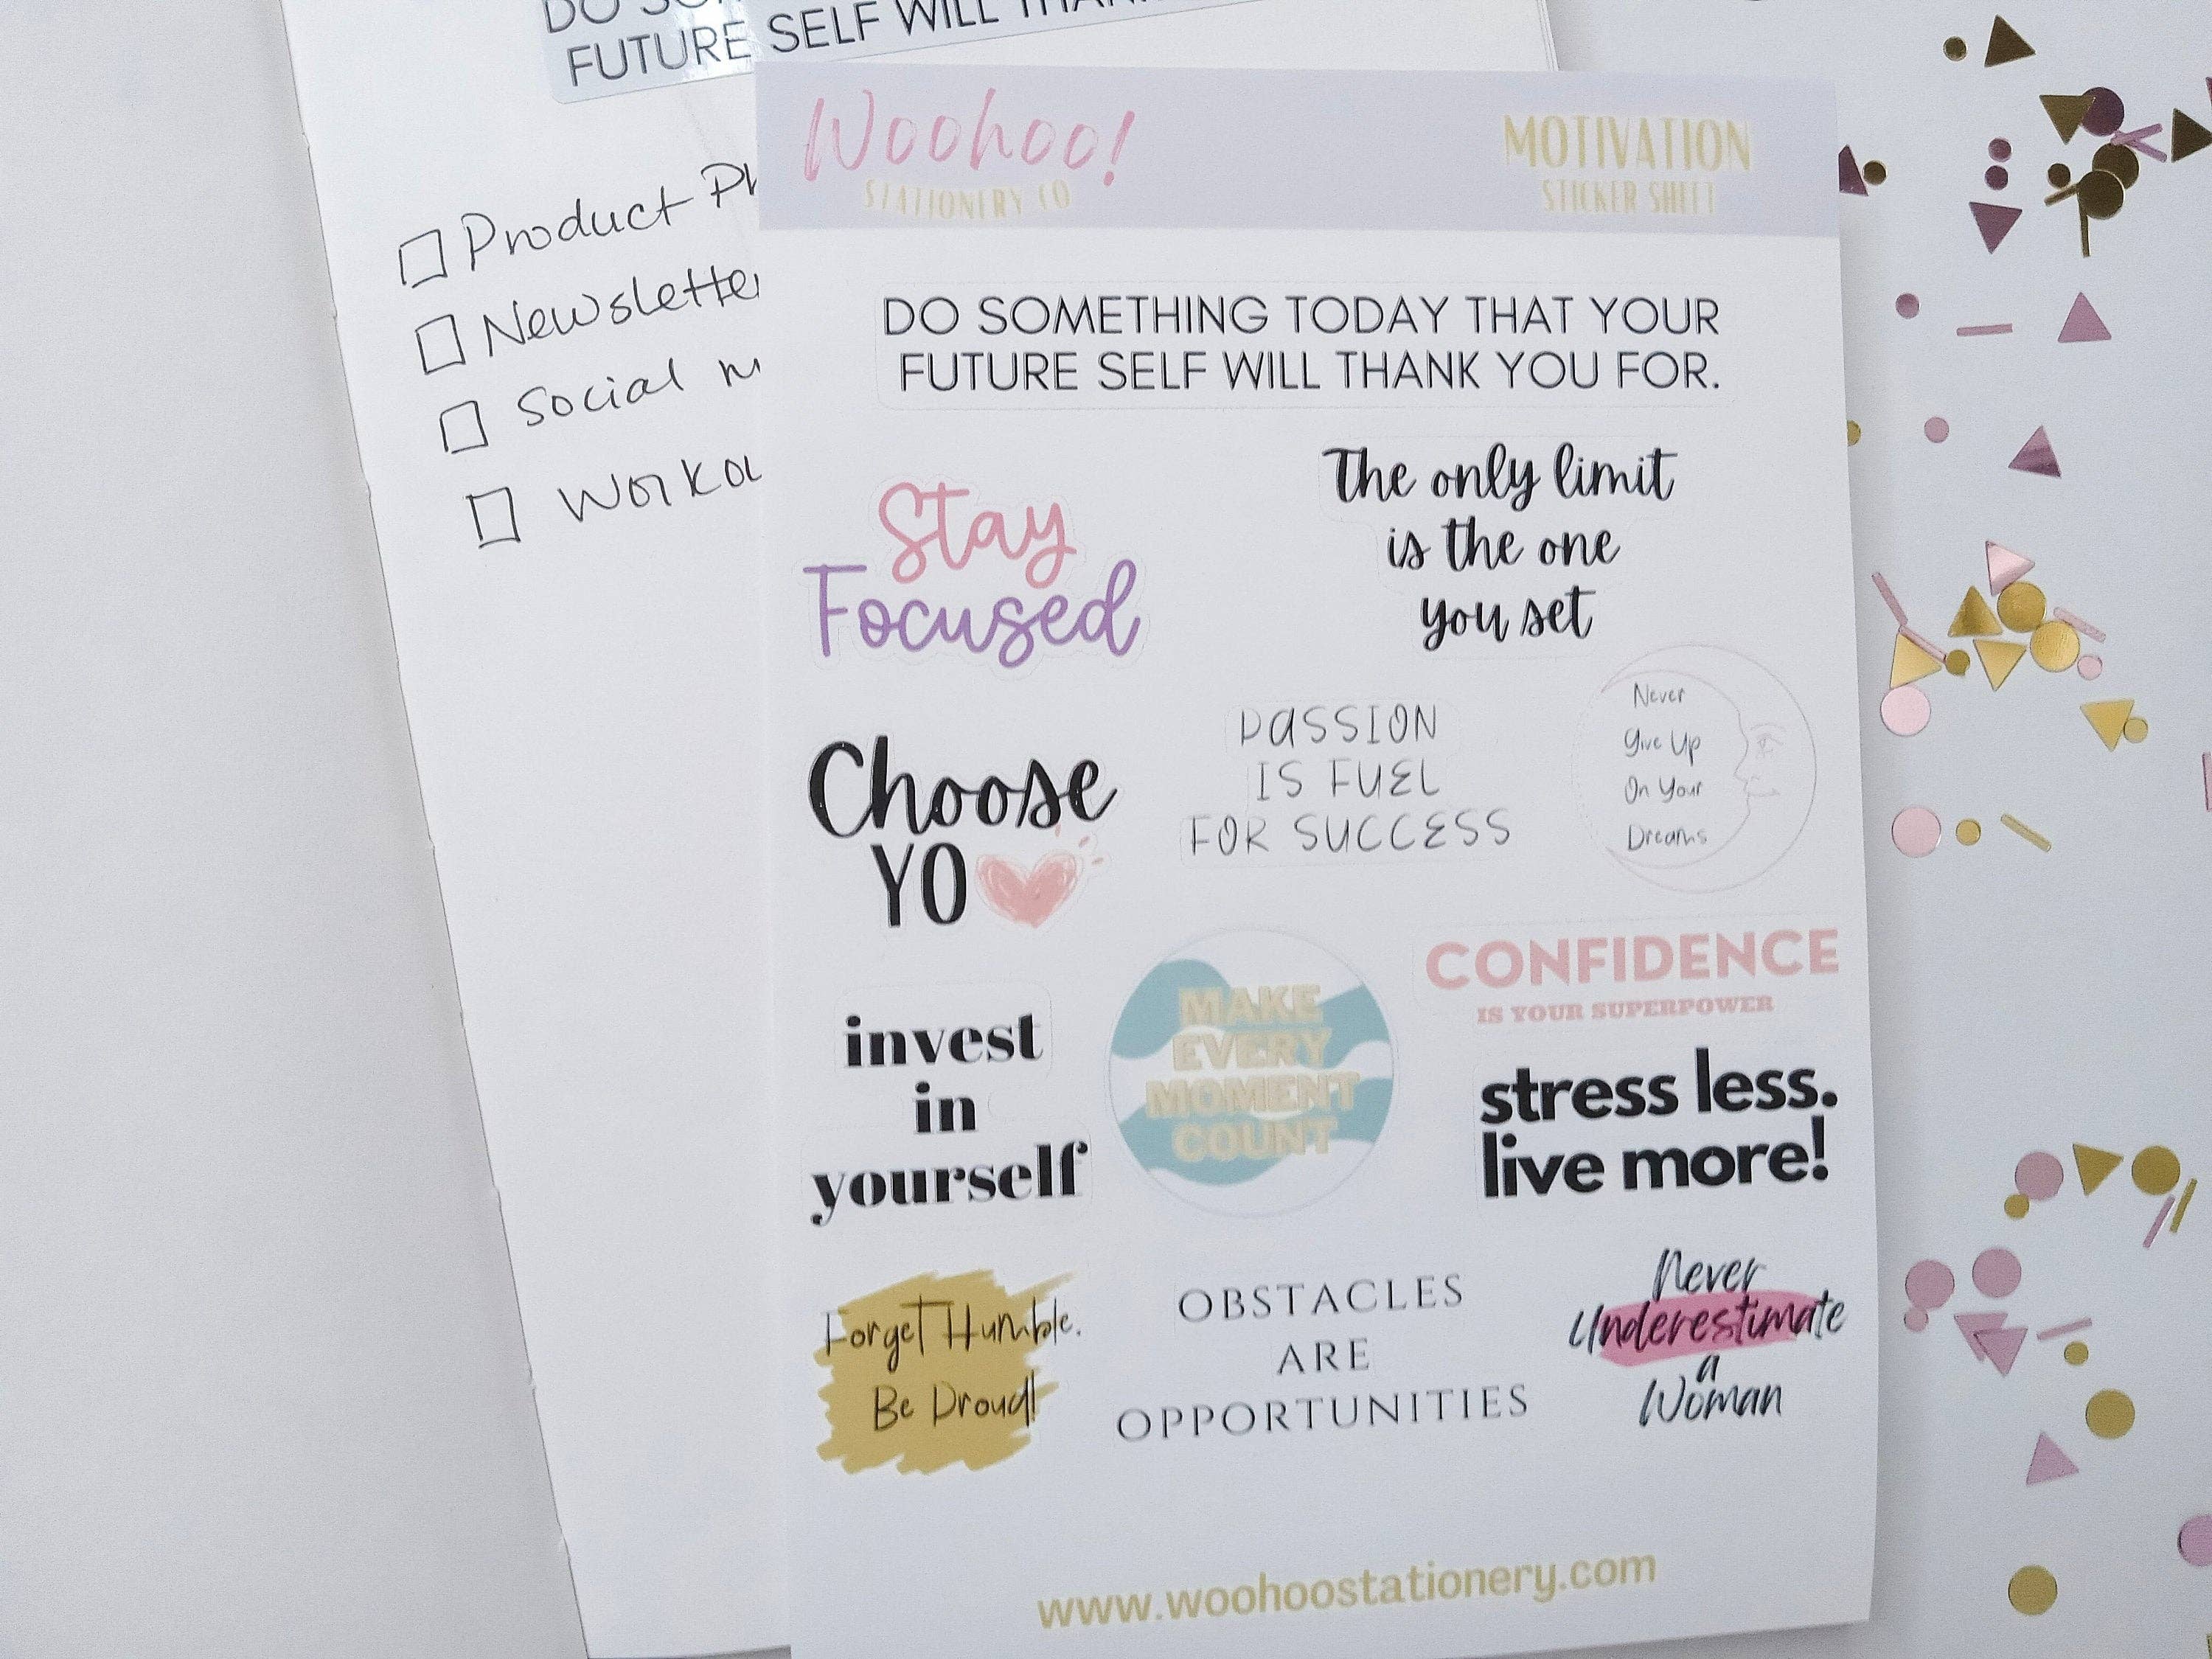 FUTURE SELF WILL
Product
Social
Woohoo!
STATIONERY CO
MOTIVATION
STICKER SHEET
DO SOMETHING TODAY THAT YOUR
FUTURE SELF WILL THANK YOU FOR.
Stay
Focused
The only limit
is the one
you set
Choose
YO
PASSION
IS FUEL
FOR SUCCESS
Never
Give Up
On Your
Dreams
invest
in
yourself
MAKE
EVERY
MOMENT
COUNT
CONFIDENCE
IS YOUR SUPERPOWER
stress less.
live more!
Forget Humble.
Be Proud!
OBSTACLES
ARE
OPPORTUNITIES
Never
Underestimate
a
Woman
www.woohoostationery.com